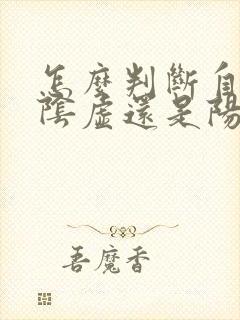 怎麼判斷自
陰虛還是陽
吾魔香